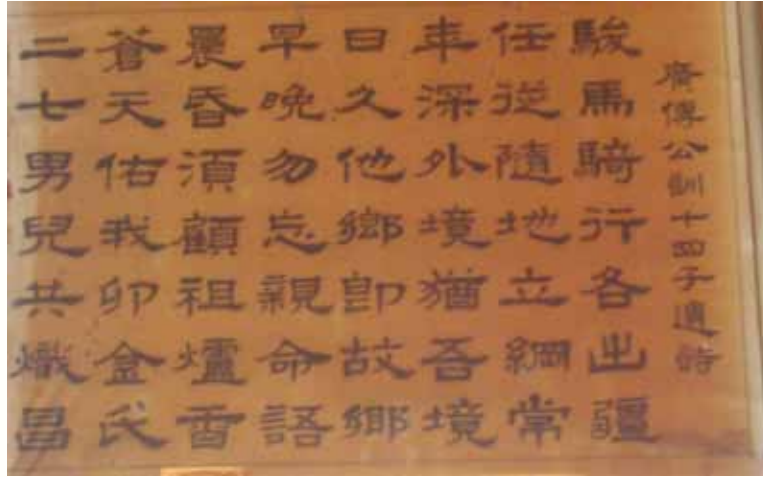 廣傳公訓十四子遺詩
駿馬騎行各出疆
任從隨地立綱常
年深外境猶吾境
日久他鄉即故鄉
早晚勿忘親命語
晨昏須顧祖爐香
蒼天佑我卯金氏
二七男兒共熾昌